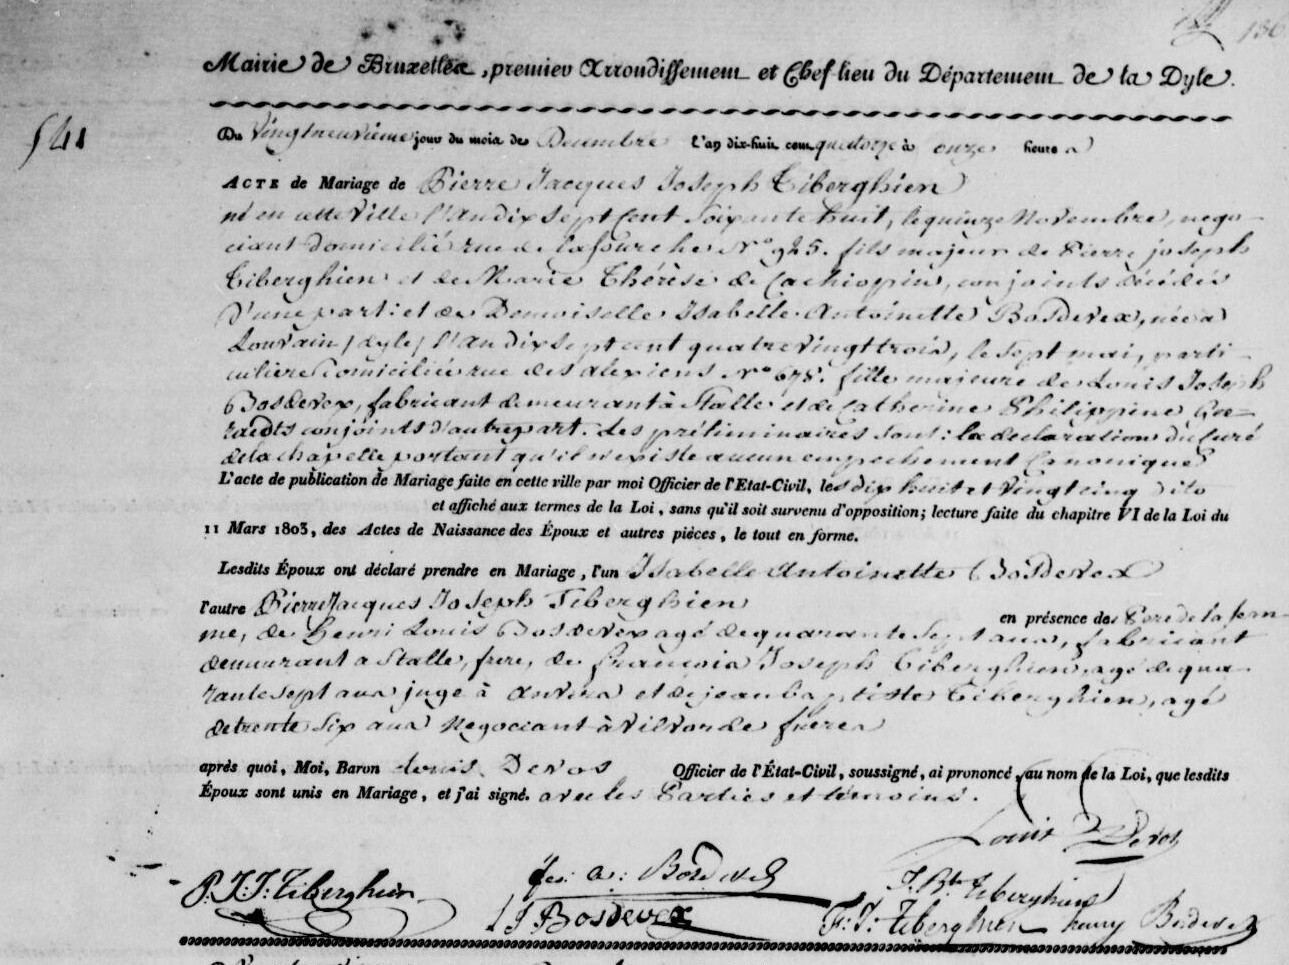 136
Mairie de Bruxelles, premier Arrondissement et Chef-lieu du Département de la Dyle.
541
Du Vingtneuvieme jour du mois de Decembre l'an dix-huit cent quatorze à onze heures
ACTE de Mariage de Pierre Jacques Joseph Tiberghien
né en cette Ville l'an dix sept Cent Soixante huit, le quinze Novembre, nego-
ciant domicilié rue de la fourche N° 925. fils majeur de Pierre joseph
Tiberghien et de Marie Thérèse de Cachiopin, conjoints décédés
d'une part: et de Demoiselle Isabelle Antoinette Bosdevex, née à
Louvain / dyle / l'an dix sept cent quatre vingt trois, le sept mai, parti-
culiere domiciliée rue des alexiens N° 678. fille majeure de Louis Joseph
Bosdevex, fabricant demeurant à Stalle et de Catherine Philippine Gee-
raidts conjoints d'autre part. Les préliminaires sont: la declaration du Curé
de la chapelle portant qu'il n'existe aucun empechement Canonique
L'acte de publication de Mariage faite en cette ville par moi Officier de l'Etat-Civil, les dix huit et vingt cinq dito
et affiché aux termes de la Loi, sans qu'il soit survenu d'opposition; lecture faite du chapitre VI de la Loi du
11 Mars 1803, des Actes de Naissance des Époux et autres pièces, le tout en forme.
Lesdits Époux ont déclaré prendre en Mariage, l'un Isabelle Antoinette Bosdevex
l'autre Pierre Jacques Joseph Tiberghien en présence des Pere de la fem-
me, de Henri Louis Bosdevex agé de quarante Sept ans, fabricant
demeurant a Stalle, frere, de françois Joseph Tiberghien, agé de qua-
rante sept ans juge à Anvers et de jean baptiste Tiberghien, agé
de trente Six ans Negociant à Vilvorde freres
après quoi, Moi, Baron Louis Devos Officier de l'État-Civil, soussigné, ai prononcé, au nom de la Loi, que lesdits
Époux sont unis en Mariage, et j'ai signé. avec les Parties et témoins.
Louis Devos
P. J. J. Tiberghien a: Bosdevex J. Bte Tiberghien
L J Bosdevex F: J: Tiberghien henry Bosdevex